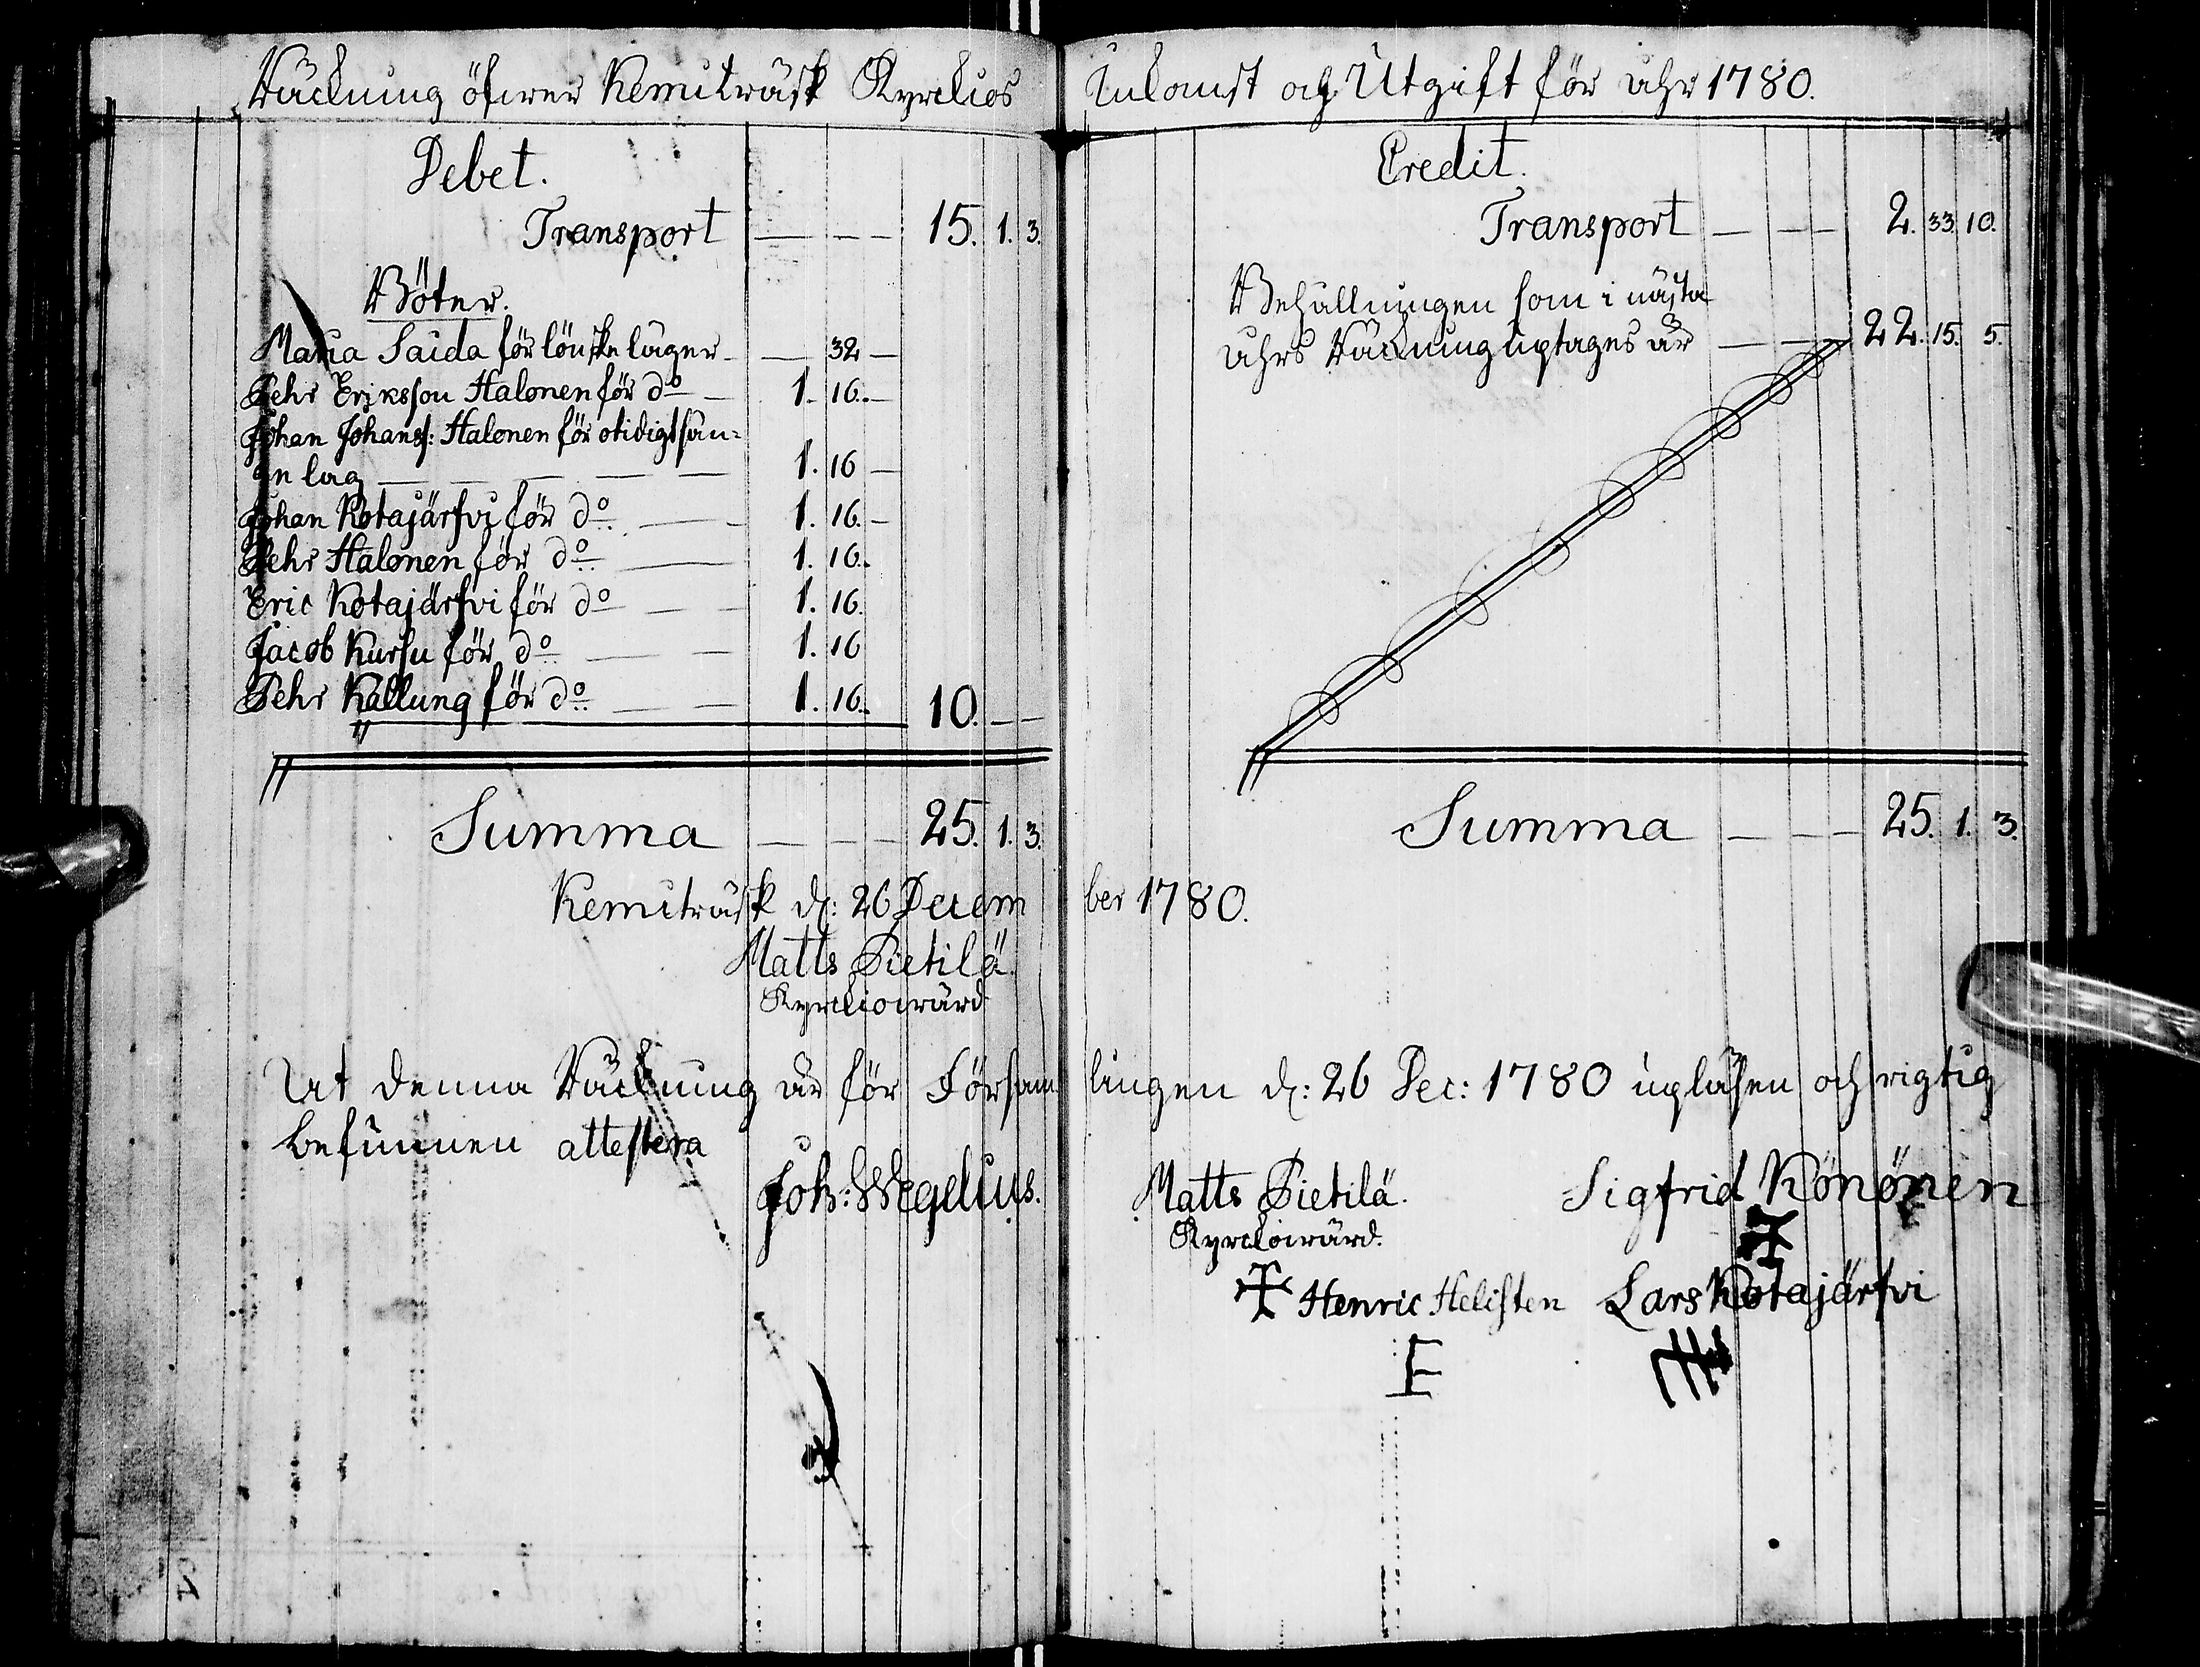 Räckning öfwer Kemiträsk Kyrckios Inkomst och Utgift för åhr 1780.
Debet.
Transport — — — 15. 1. 3.
Böter.
Maria Saida för lönskeläger — — 32 —
Pehr Eriksson Halonen för do — 1. 16. —
Johan Johanss: Halonen för otidigt sän=
ge lag — — — — — 1. 16 —
Johan Kotajärfvi för do. — — 1. 16. —
Pehr Halonen för do. — 1. 16.
Eric Kotajärfvi för do — — 1. 16.
Jacob Kursu för do — — 1. 16
Pehr Kallung för do. — — 1. 16. 10. — —
Summa — — — 25. 1. 3.
Credit.
Transport — — — 2. 33. 10.
Behållningen som i nästa
åhrs Räckning uptages är — — 22. 15. 5.
Summa — — — 25. 1. 3.
Kemiträsk d: 26 December 1780.
Matts Pietilä.
Kyrckiowärd
At denna Räckning är för Församlingen d: 26 Dec: 1780 upläsen och rigtig
befunnen attestera
Joh: Wegelius.
Matts Pietilä.
Kyrckiowärd.
Sigfrid Könönen
Henric Helisten Lars Kotajärfvi